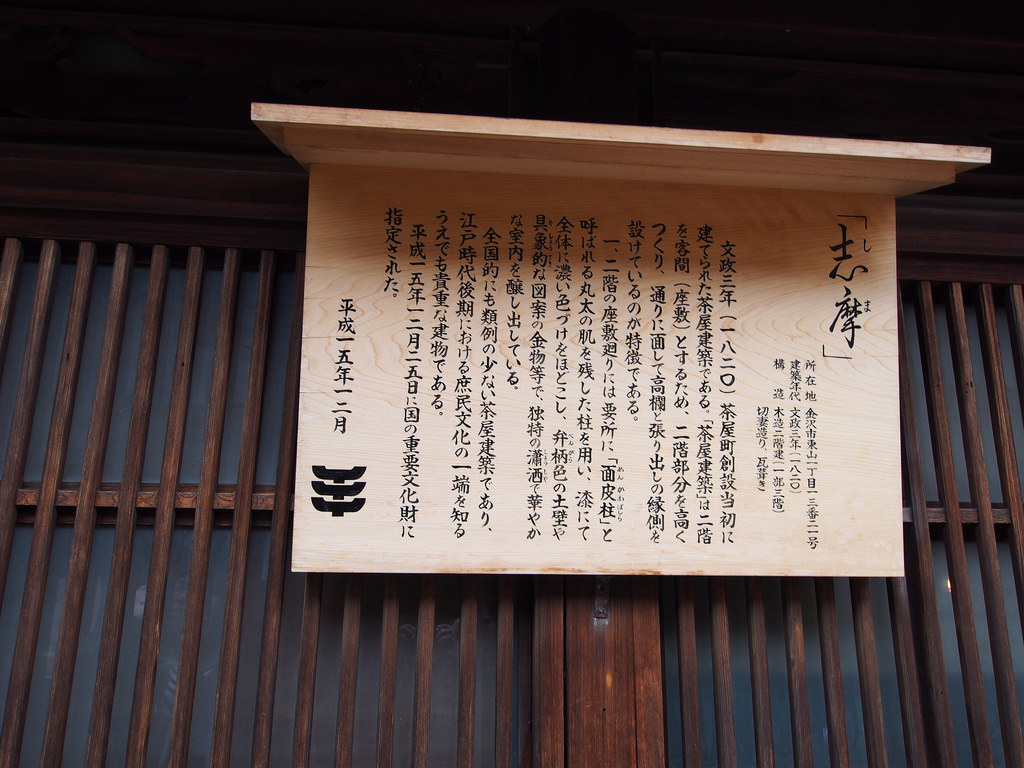 「志摩」
しま
所在地 金沢市東山一丁目一三番二一号
建築年代 文政三年(一八二〇)
構造 木造二階建(一部三階)
切妻造り、瓦葺き
文政三年(一八二〇)茶屋町創設当初に
建てられた茶屋建築である。「茶屋建築」は二階
を客間(座敷)とするため、二階部分を高く
つくり、通りに面して高欄と張り出しの縁側を
設けているのが特徴である。
一、二階の座敷廻りには要所に「面皮柱」と
めんかわばしら
呼ばれる丸太の肌を残した柱を用い、漆にて
全体に濃い色づけをほどこし、弁柄色の土壁や
べんがら
具象的な図案の金物等で、独特の瀟洒で華やか
な室内を醸し出している。
全国的にも類例の少ない茶屋建築であり、
江戸時代後期における庶民文化の一端を知る
うえでも貴重な建物である。
平成一五年一二月二五日に国の重要文化財に
指定された。
平成一五年一二月